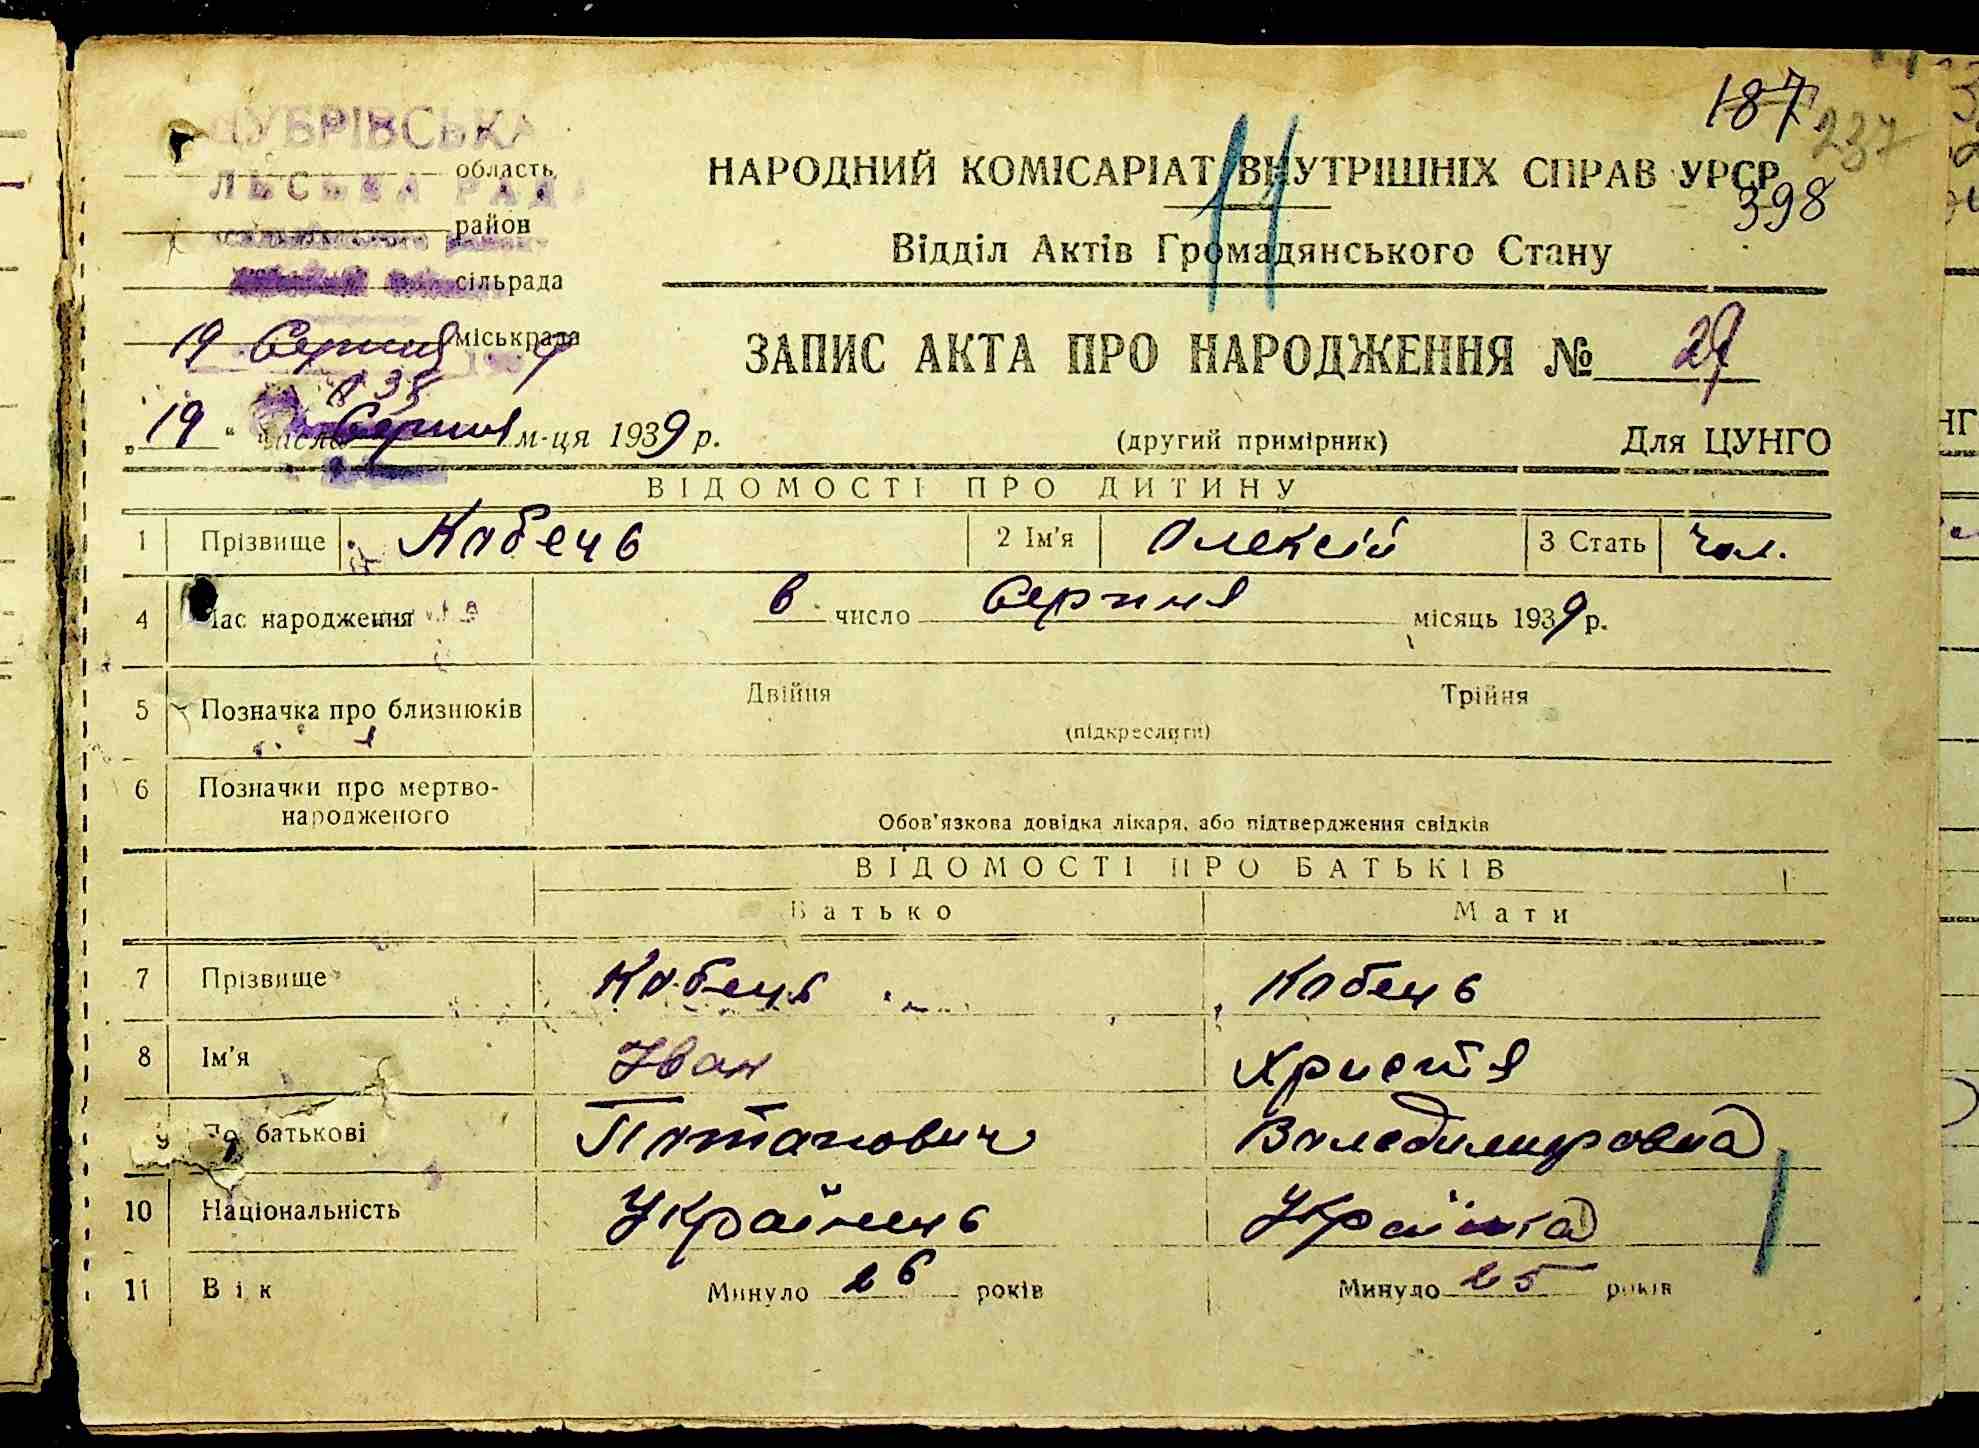 187 237
УБРІВСЬКА
область
НАРОДНИЙ КОМІСАРІАТ ВНУТРІШНІХ СПРАВ УРСР
ЛЬСЬКА РАДА
398
район
Відділ Актів Громадянського Стану
сільрада
19 Серпня міськрада
ЗАПИС АКТА ПРО НАРОДЖЕННЯ №
„19“ число Серпня м-ця 1939 р.
(другий примірник) Для ЦУНГО
ВІДОМОСТІ ПРО ДИТИНУ
1 Прізвище Кабець 2 Ім'я Олексій 3 Стать чол.
4 Час народження 6 число Серпня місяць 1939 р.
5 Позначка про близнюків Двійня Трійня
(підкреслити)
6 Позначки про мертво-
народженого
Обов'язкова довідка лікаря, або підтвердження свідків
ВІДОМОСТІ ПРО БАТЬКІВ
Батько Мати
7 Прізвище Кабець Кабець
8 Ім'я Іван Христя
9 По батькові Потапович Володимировна
10 Національність Українець Українка
11 Вік Минуло 26 років Минуло 25 років